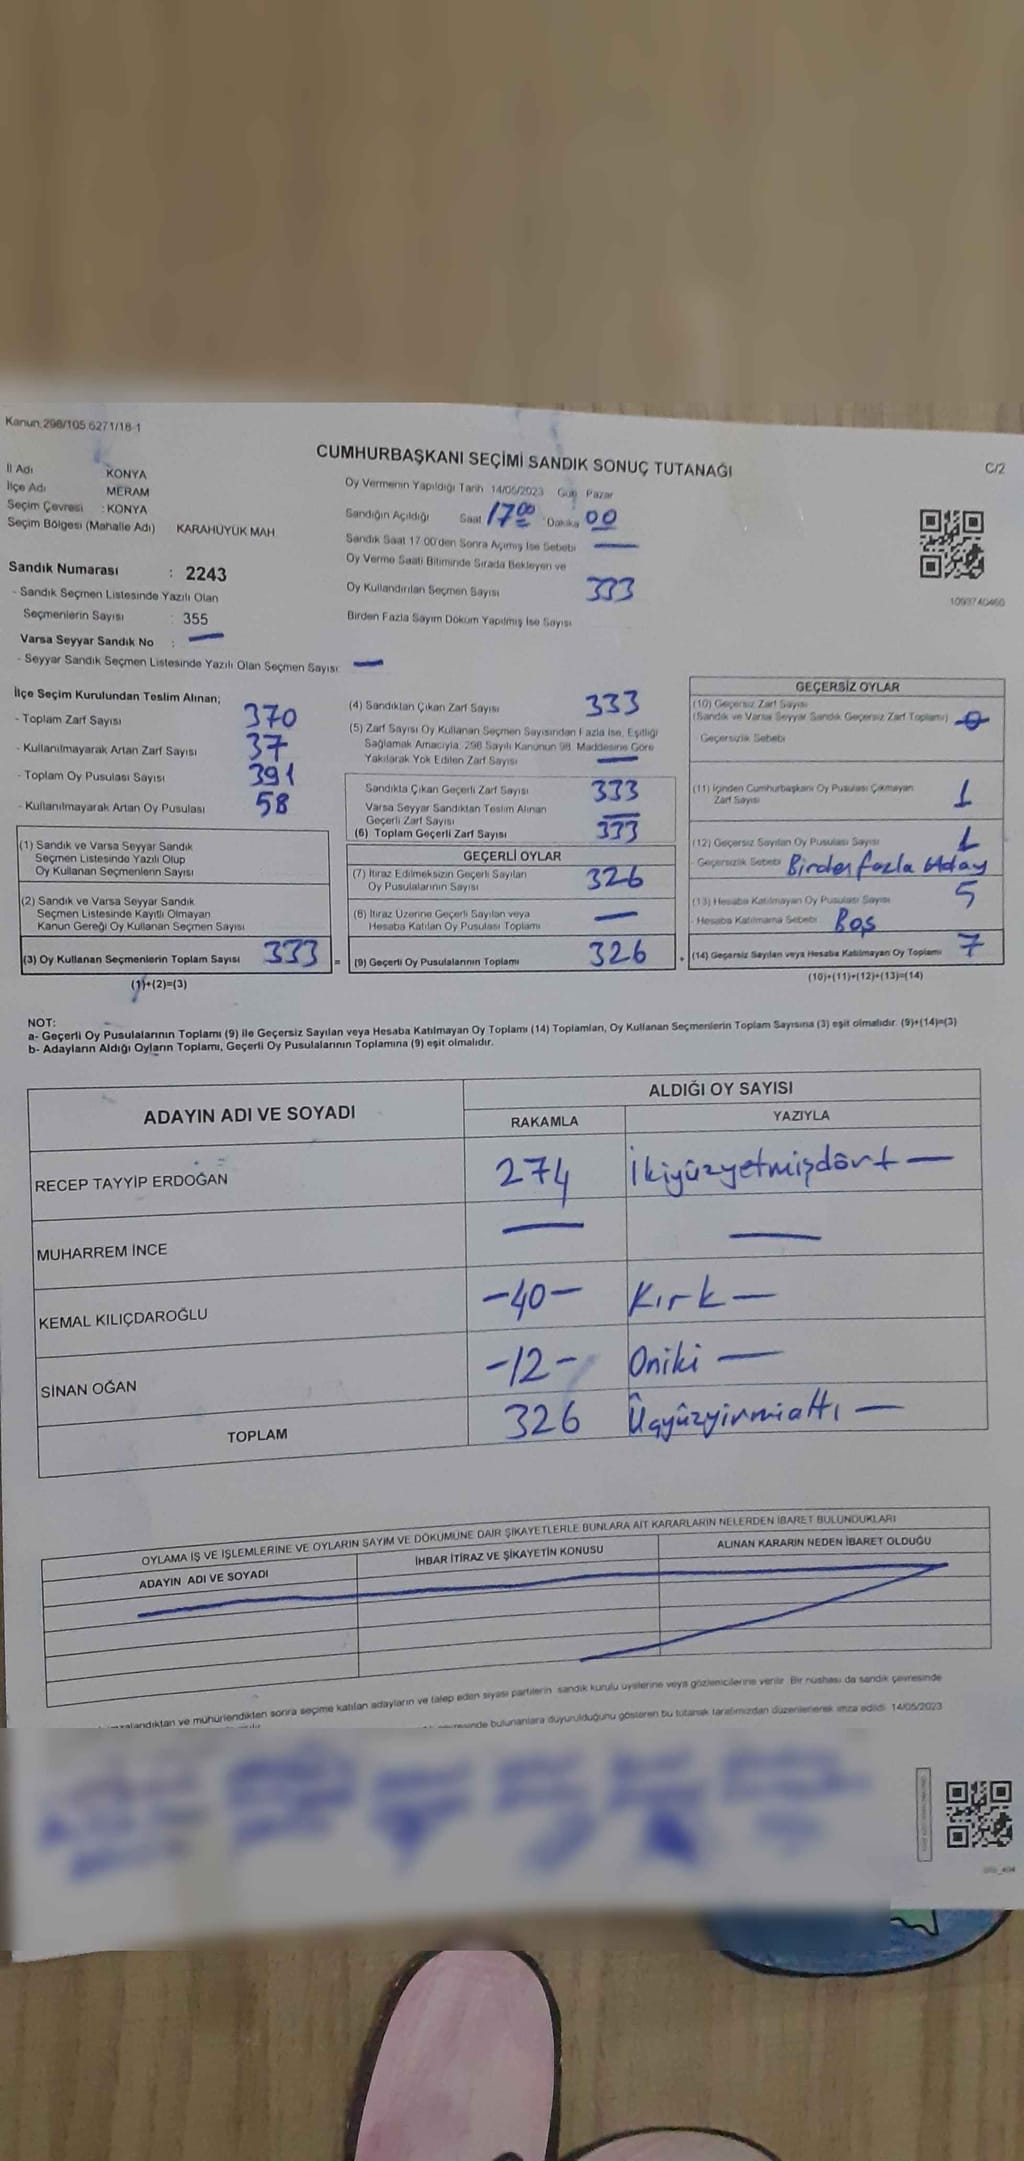 Kanun 298/105 6271/18-1
CUMHURBAŞKANI SEÇİMİ SANDIK SONUÇ TUTANAĞI
C/2
İl Adı KONYA
İlçe Adı MERAM
Seçim Çevresi : KONYA
Seçim Bölgesi (Mahalle Adı) KARAHÜYÜK MAH
Sandık Numarası : 2243
- Sandık Seçmen Listesinde Yazılı Olan
Seçmenlerin Sayısı : 355
Varsa Seyyar Sandık No : —
- Seyyar Sandık Seçmen Listesinde Yazılı Olan Seçmen Sayısı —
Oy Vermenin Yapıldığı Tarih 14/05/2023 Gün Pazar
Sandığın Açıldığı Saat 17 00 Dakika 00
Sandık Saat 17 00'den Sonra Açımış İse Sebebi —
Oy Verme Saati Bitiminde Sırada Bekleyen ve
Oy Kullandırılan Seçmen Sayısı 333
Birden Fazla Sayım Döküm Yapılmış İse Sayısı
1093740460
İlçe Seçim Kurulundan Teslim Alınan;
- Toplam Zarf Sayısı 370
- Kullanılmayarak Artan Zarf Sayısı 37
- Toplam Oy Pusulası Sayısı 391
- Kullanılmayarak Artan Oy Pusulası 58
(1) Sandık ve Varsa Seyyar Sandık
Seçmen Listesinde Yazılı Olup
Oy Kullanan Seçmenlerin Sayısı
(2) Sandık ve Varsa Seyyar Sandık
Seçmen Listesinde Kayıtlı Olmayan
Kanun Gereği Oy Kullanan Seçmen Sayısı
(3) Oy Kullanan Seçmenlerin Toplam Sayısı 333
(1)+(2)=(3)
(4) Sandıktan Çıkan Zarf Sayısı 333
(5) Zarf Sayısı Oy Kullanan Seçmen Sayısından Fazla İse, Eşitliği
Sağlamak Amacıyla, 298 Sayılı Kanunun 98. Maddesine Göre
Yakılarak Yok Edilen Zarf Sayısı —
Sandıkta Çıkan Geçerli Zarf Sayısı 333
Varsa Seyyar Sandıktan Teslim Alınan
Geçerli Zarf Sayısı —
(6) Toplam Geçerli Zarf Sayısı 333
GEÇERLİ OYLAR
(7) İtiraz Edilmeksizin Geçerli Sayılan
Oy Pusulalarının Sayısı 326
(8) İtiraz Üzerine Geçerli Sayılan veya
Hesaba Katılan Oy Pusulası Toplamı —
= (9) Geçerli Oy Pusulalarının Toplamı 326
GEÇERSİZ OYLAR
(10) Geçersiz Zarf Sayısı
(Sandık ve Varsa Seyyar Sandık Geçersiz Zarf Toplamı) -0-
Geçersizlik Sebebi
(11) İçinden Cumhurbaşkanı Oy Pusulası Çıkmayan
Zarf Sayısı 1
(12) Geçersiz Sayılan Oy Pusulası Sayısı 1
- Geçersizlik Sebebi Birden fazla Aday
(13) Hesaba Katılmayan Oy Pusulası Sayısı 5
- Hesaba Katılmama Sebebi Boş
+ (14) Geçersiz Sayılan veya Hesaba Katılmayan Oy Toplamı 7
(10)+(11)+(12)+(13)=(14)
NOT:
a- Geçerli Oy Pusulalarının Toplamı (9) ile Geçersiz Sayılan veya Hesaba Katılmayan Oy Toplamı (14) Toplamları, Oy Kullanan Seçmenlerin Toplam Sayısına (3) eşit olmalıdır. (9)+(14)=(3)
b- Adayların Aldığı Oyların Toplamı, Geçerli Oy Pusulalarının Toplamına (9) eşit olmalıdır.
ADAYIN ADI VE SOYADI ALDIĞI OY SAYISI
RAKAMLA YAZIYLA
RECEP TAYYİP ERDOĞAN 274 İkiyüzyetmişdört —
MUHARREM İNCE — —
KEMAL KILIÇDAROĞLU -40- Kırk —
SİNAN OĞAN -12- Oniki —
TOPLAM 326 Üçyüzyirmialtı —
OYLAMA İŞ VE İŞLEMLERİNE VE OYLARIN SAYIM VE DÖKÜMÜNE DAİR ŞİKAYETLERLE BUNLARA AİT KARARLARIN NELERDEN İBARET BULUNDUKLARI
ADAYIN ADI VE SOYADI İHBAR İTİRAZ VE ŞİKAYETİN KONUSU ALINAN KARARIN NEDEN İBARET OLDUĞU
ve mühürlendikten sonra seçime katılan adayların ve talep eden siyasi partilerin sandık kurulu üyelerine veya gözlemcilerine verilir Bir nüshası da sandık çevresinde
bulunanlara duyurulduğunu gösteren bu tutanak tarafımızdan düzenlenerek imza edildi 14/05/2023